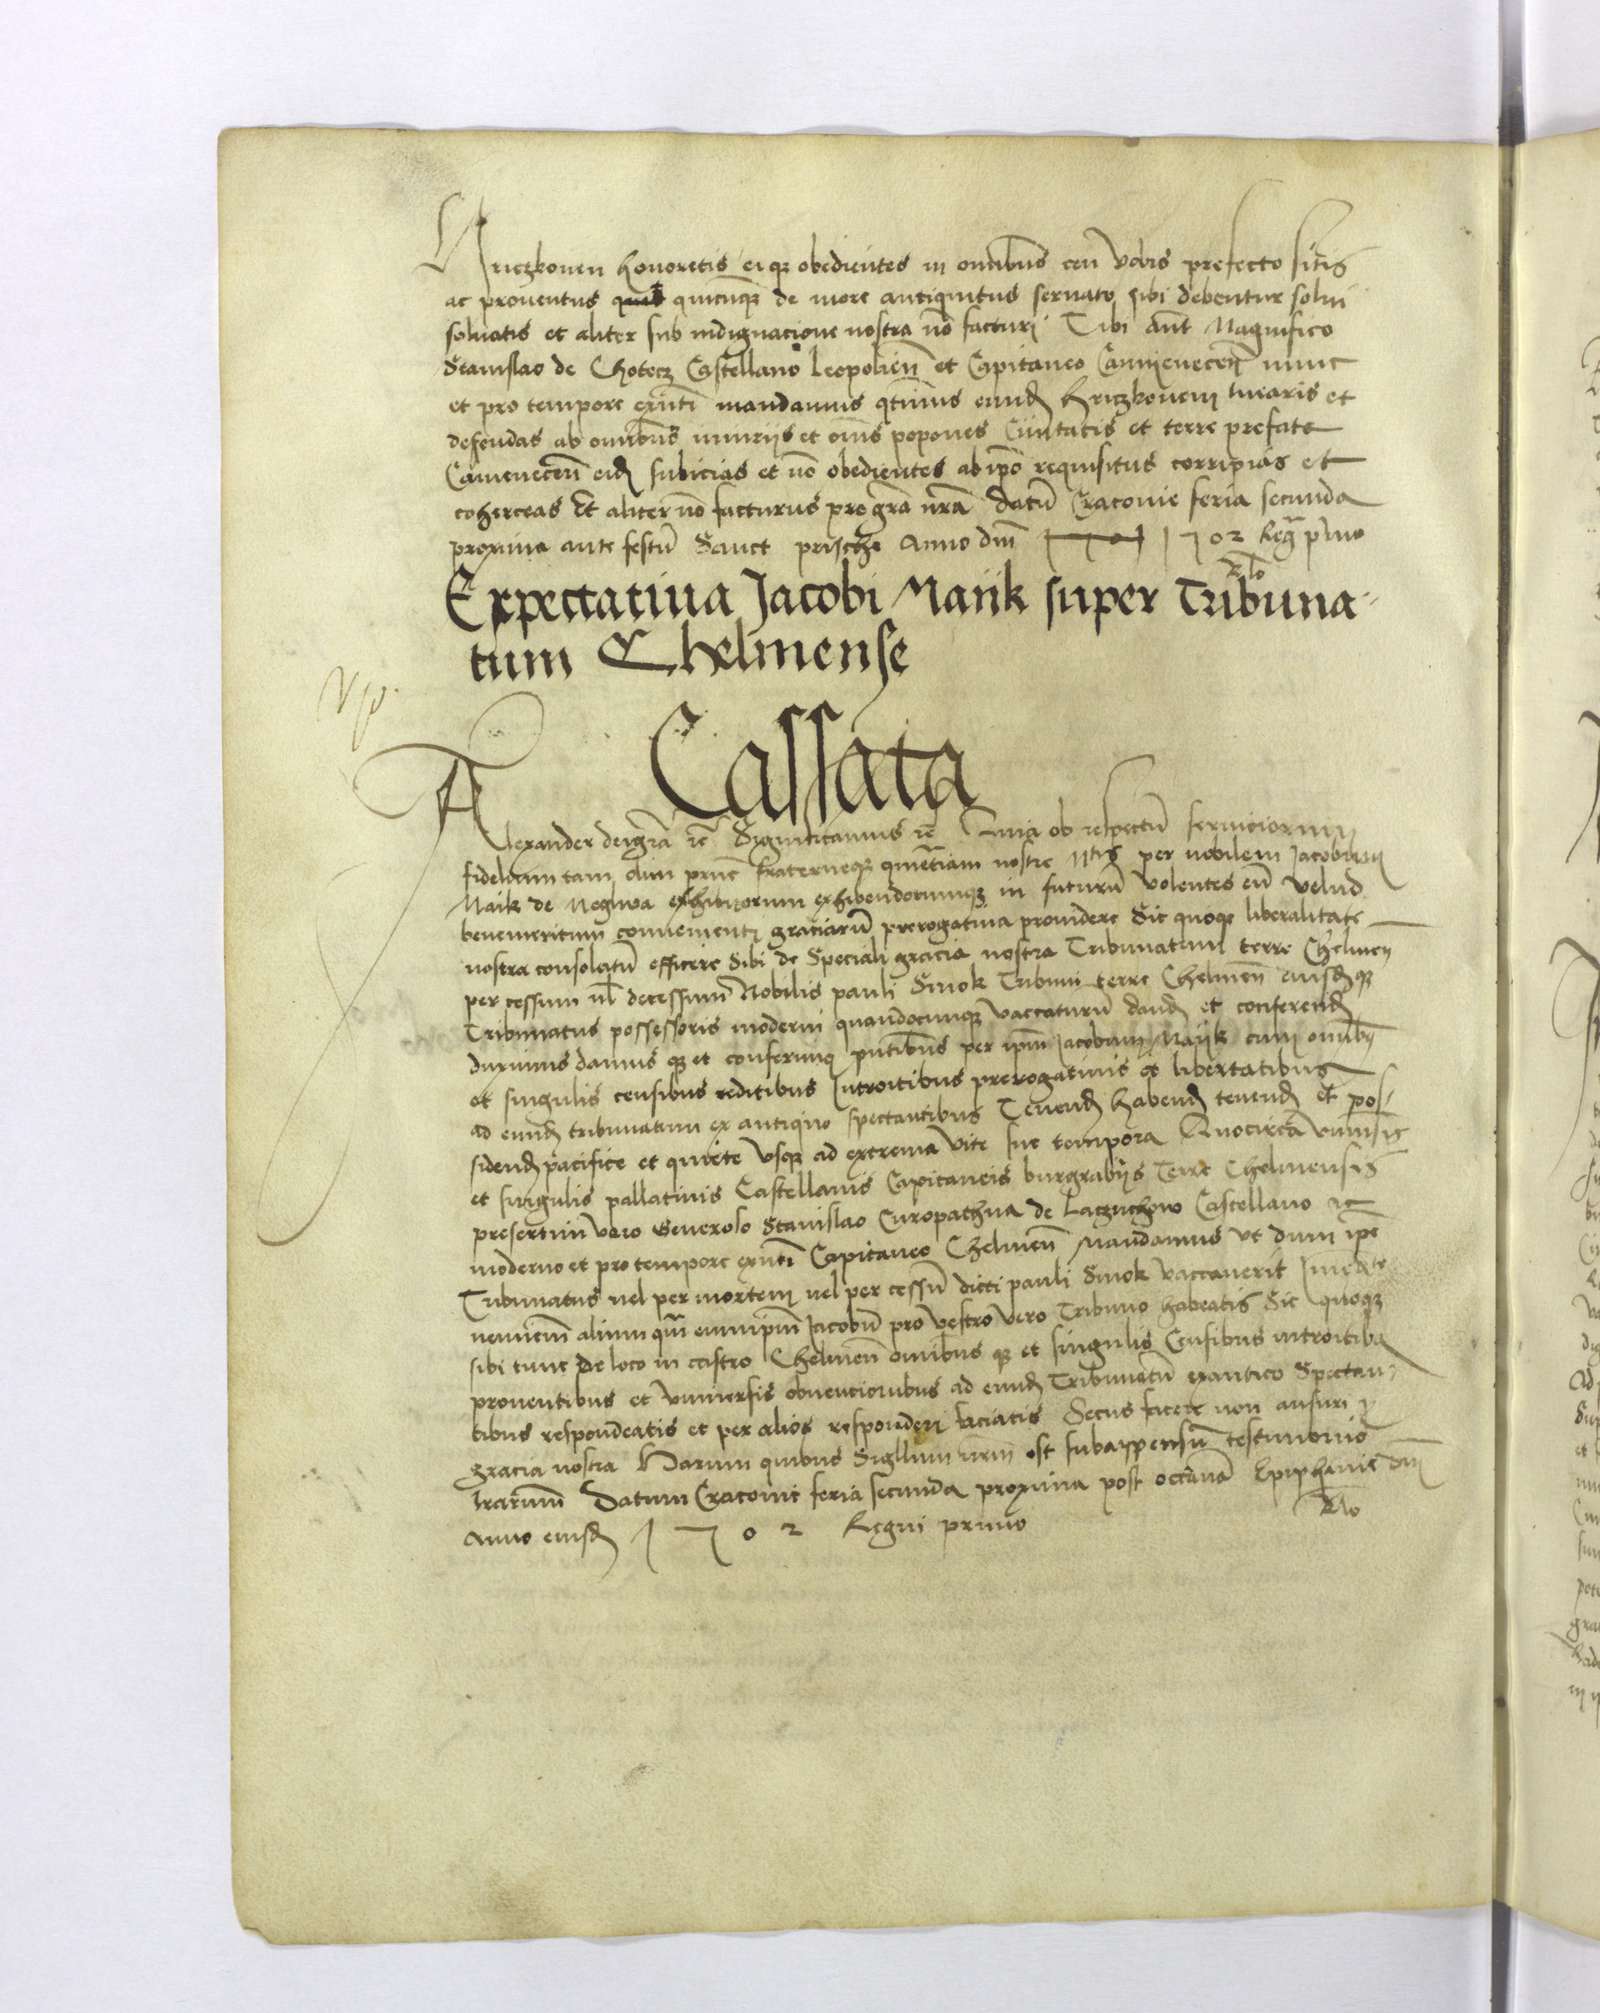 Hriczkonem honoretis eique obedientes in omnibus ceu vobis prefecto sitis
ac proventus quicunque de more antiquitus servato sibi debentur solvi
solvatis et aliter sub indignacione nostra nō facturi Tibi aūt Magnifico
Stanislao de Chotecz Castellano Leopolień et Capitaneo Cameneceń nunc
et pro tempore exnti mandamus qtinus eund Hriczkonem tuearis et
defendas ab omnibus iniuriis et oms popones Civitatis et terre prefate
Cameneceń eid subicias et nō obedientes ab ipo requisitus corripias et
coherceas Et aliter nō facturus pro gra nra Datū Cracovie feria secunda
proxima ante festū Sanct prische Anno dni 1702 Regn primo
Rlo
Expectativa Jacobi Maiik super Tribuna-
tum Chelmense
Cassata
Alexander dei gra rc Significamus rc Quia ob respectū serviciorum
fidelium tam olim prnt fraterneque quietiam nostre Mtis per nobilem Jacobum
Maik de exhibitorum exhibendorumque in futurū volentes eū velud
benemeritum convenienti graciarū prerogativa providere Sic quoque liberalitate
nostra consolatū efficere Sibi de Speciali gracia nostra Tribunatum terre Chelmeń
per cessum vl decessum Nobilis pauli Smok Tribuni terre Chelmeń eiusdque
Tribunatus possessoris moderni quandocunque vaccaturū dand et conferend
duximus damusque et conferimus pntibus per ipm Jacobum Maiik cum omnibus
et singulis censibus reditibus Introitibus prerogativis et libertatibus
ad eund tribunatum ex antiquo spectantibus Tenend habend tenend et pos-
sidend pacifice et quiete usque ad extrema vite sue tempora Quocirca universis
et singulis pallatinis Castellanis Capitaneis burgrabiis Terre Chelmensis
presertim vero Generoso Stanislao Curopathva de Laczuchow Castellano ac
moderno et pro tempore exnti Capitaneo Chelmeń Mandamus ut dum ipe
Tribunatus vel per mortem vel per cessū dicti pauli Smok vaccaverit Imediate
neminem alium qm eumipm Jacobū pro vestro vero Tribuno habeatis Sic quoque
sibi tunc de loco in castro Chelmeń omnibusque et singulis Censibus introitibus
proventibus et universis obvencionibus ad eund Tribunatū exantico Spectan-
tibus respondeatis et per alios responderi faciatis Secus facere non ausuri p
gracia nostra Harum quibus Sigillum nrm est subappensū testimonio
lrarum Datum Cracovie feria secunda proxima post octavā Epiphanie dni
Anno eiusd 1702 Regni primo
Rlo